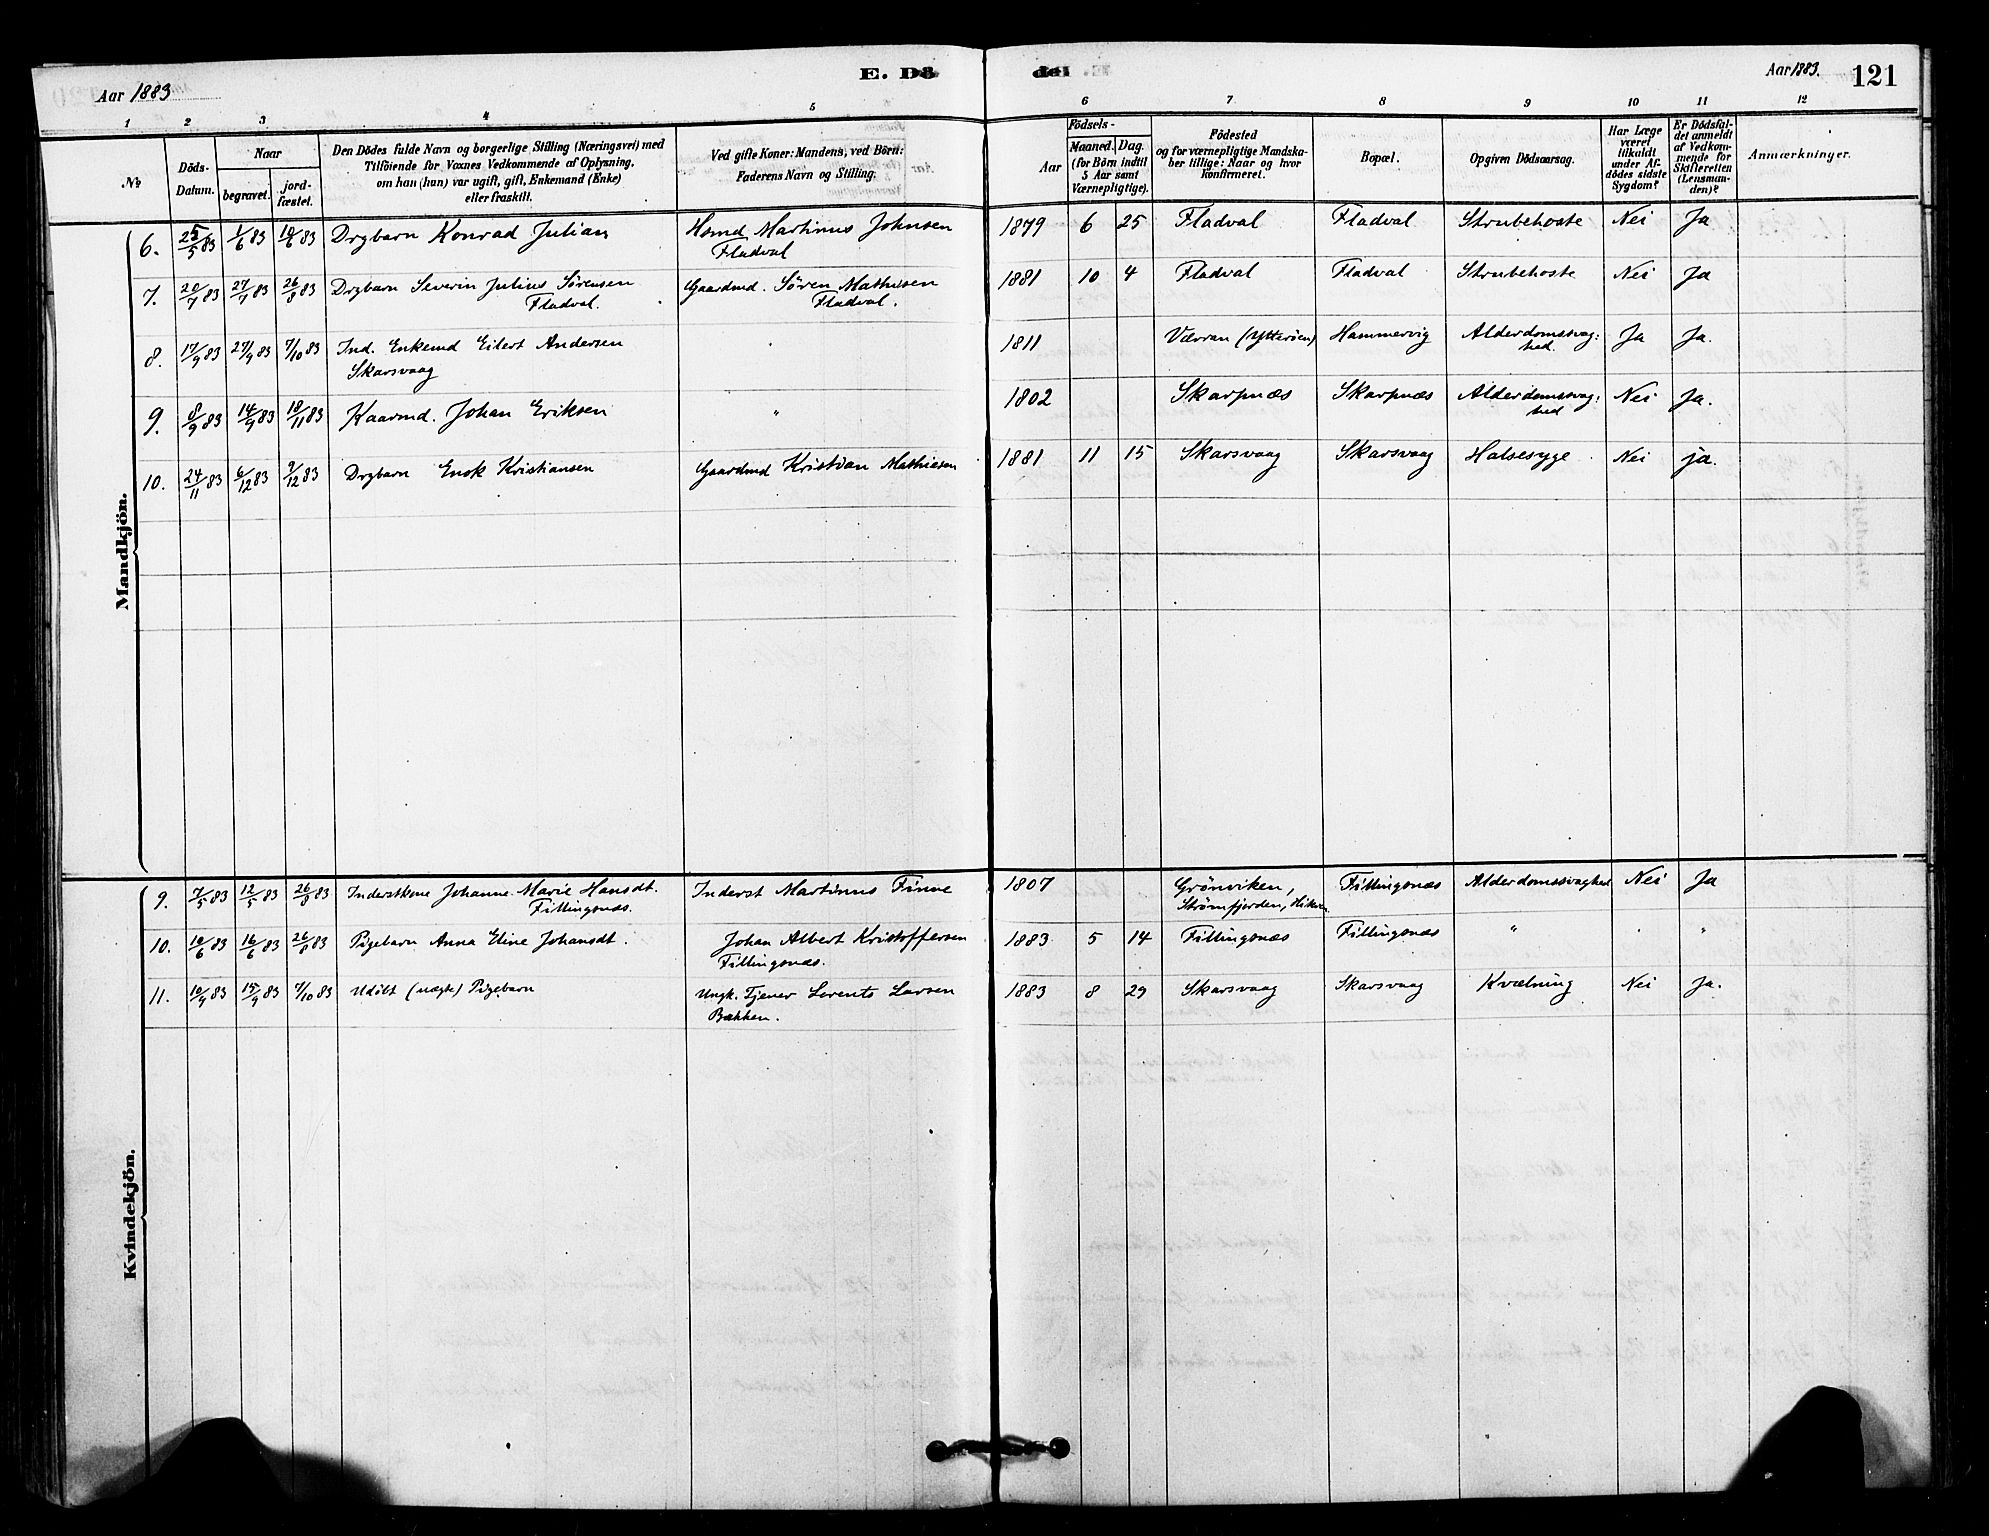 Aar 1883
E. Dö
del
Aar 1883.
121
1 2 3 4 5 6 7 8 9 10 11 12
№
Döds-
Datum.
Naar
begravet.
jord-
fæstet.
Den Dödes fulde Navn og borgerlige Stilling (Næringsvei) med
Tilföiende for Voxnes Vedkommende af Oplysning,
om han (hun) var ugift, gift, Enkemand (Enke)
eller fraskilt.
Ved gifte Koner: Mandens, ved Börn:
Faderens Navn og Stilling.
Födsels-
Aar
Maaned. Dag.
(for Börn indtil
5 Aar samt
Værnepligtige).
Födested
og for værnepligtige Mandska-
ber tillige: Naar og hvor
konfirmeret.
Bopæl.
Opgiven Dödsaarsag.
Har Læge
været
tilkaldt
under Af-
dödes sidste
Sygdom?
Er Dödsfal-
det anmeldt
af Vedkom-
mende for
Skifteretten
(Lensman-
den)?
Anmærkninger.
Mandkjön.
6. 25/5 83 1/6 83 10/6 83 Drgbarn Konrad Julian Hsmd Martinus Johnsen 1879 6 25 Fladval Fladval Strubehoste Nei Ja
Fladval
7. 20/7 83 27/7 83 26/8 83 Drgbarn Severin Julius Sørensen Gaardmd. Søren Mathisen 1881 10 4 Fladval Fladval Strubehoste Nei Ja
Fladval. Fladval.
8. 17/9 83 27/9 83 7/10 83 Ind. Enkemd Eilert Andersen " 1811 Værran (Ytterøen) Hammervig Alderdomssvag: Ja Ja.
Skarsvaag hed.
9. 8/9 83 14/9 83 18/11 83 Kaarmd. Johan Eriksen " 1802 Skarpnæs Skarpnæs Alderdomssvag: Nei Ja.
hed
10. 24/11 83 6/12 83 9/12 83 Drgbarn Enok Kristiansen Gaardmd Kristian Mathiesen 1881 11 15 Skarsvaag Skarsvaag Halsesyge Nei ja.
Kvindekjön.
9. 7/5 83 12/5 83 26/8 83 Inderstkone Johanne Marie Hansdt. Inderst Martinus Finne 1807 Grønviken, Fillingsnæs Alderdomssvaghed Nei Ja
Fillingsnæs. Strømfjorden,
10. 10/6 83 16/6 83 26/8 83 Pigebarn Anna Eline Johansdt. Johan Albert Kristoffersen 1883 5 14 Fillingsnæs Fillingsnæs " " "
Fillingsnæs.
11. 10/9 83 15/9 83 7/10 83 Udøbt (uægte) Pigebarn Ungk. Tjener Lorents Larsen 1883 8 29 Skarsvaag Skarsvaag Kvælning Nei Ja.
Bakken.